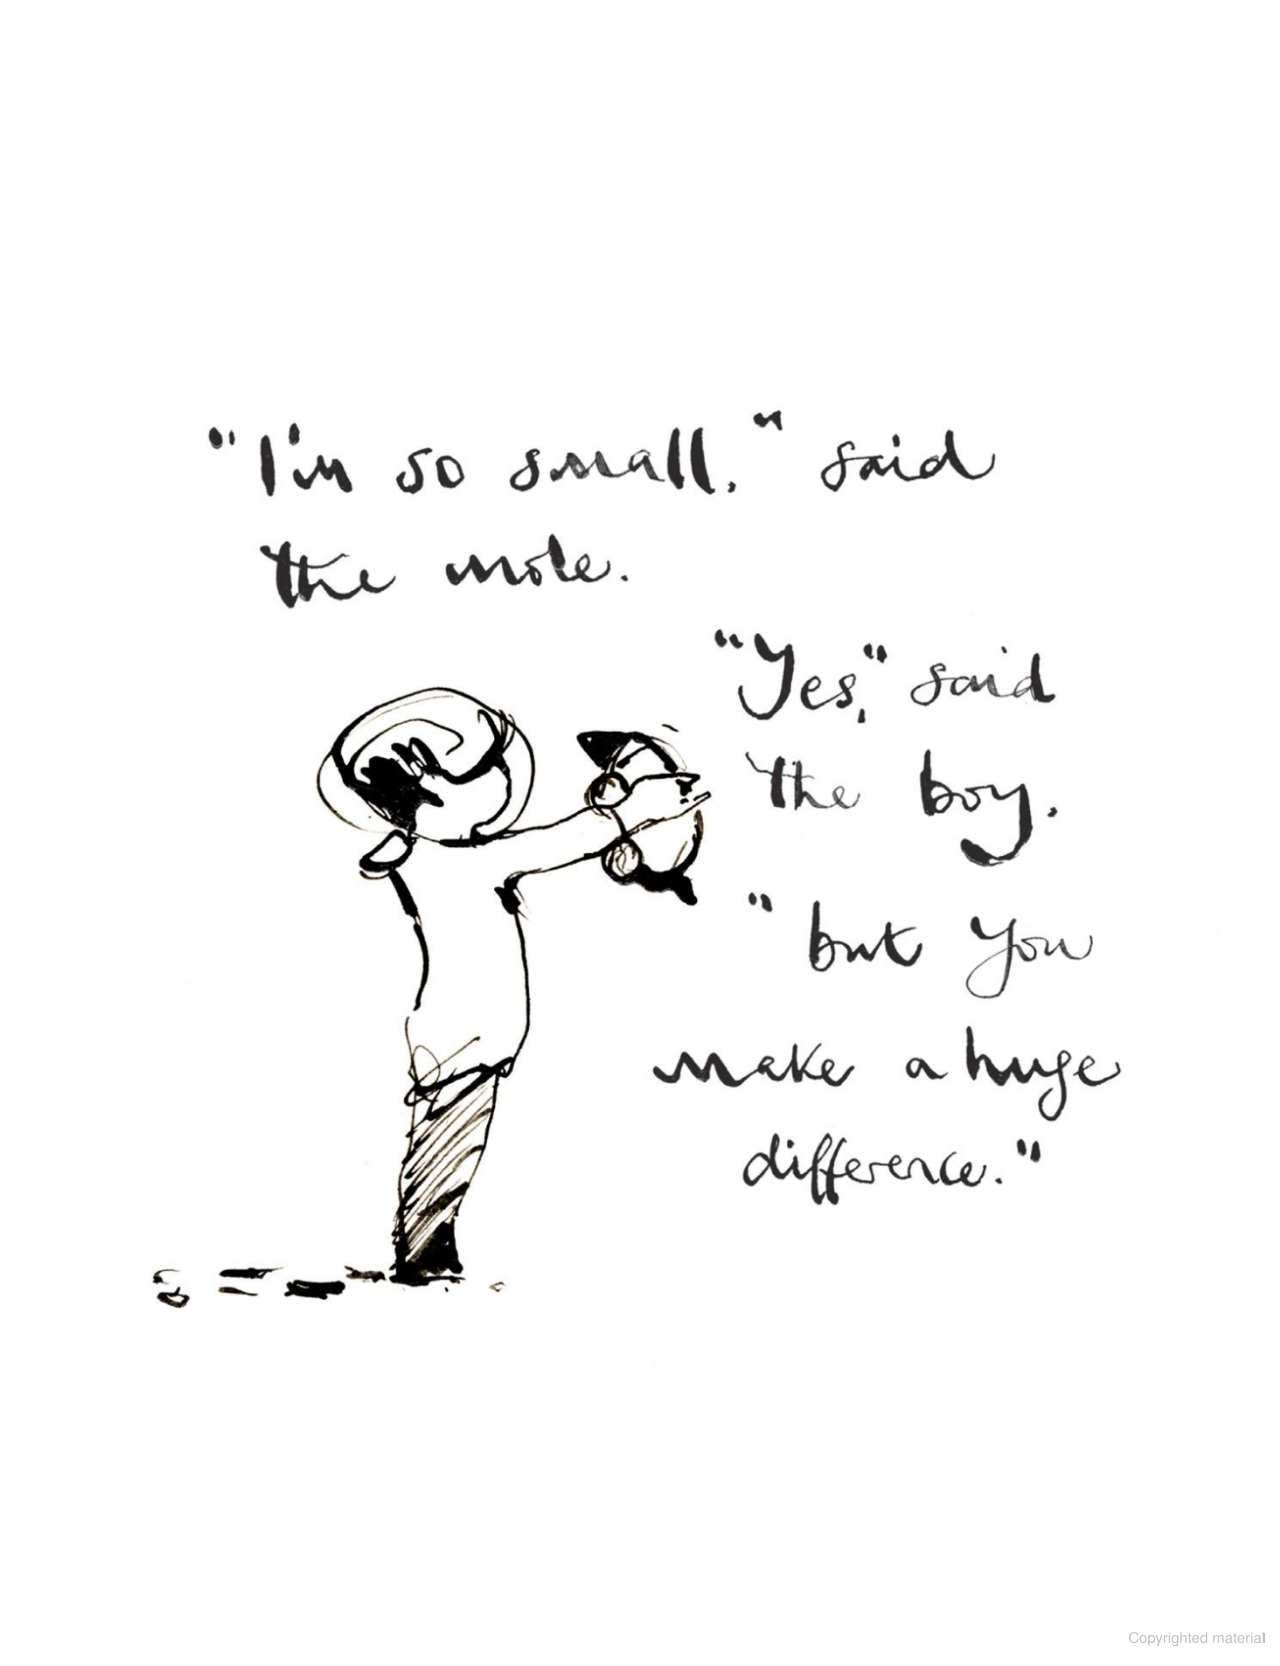 "I'm so small," said
the mole.
"Yes," said
the boy.
"but you
make a huge
difference."
Copyrighted material